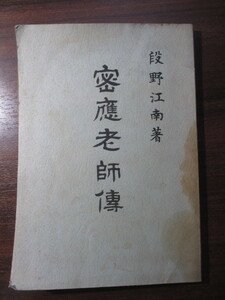 段野江南著
密應老師傳